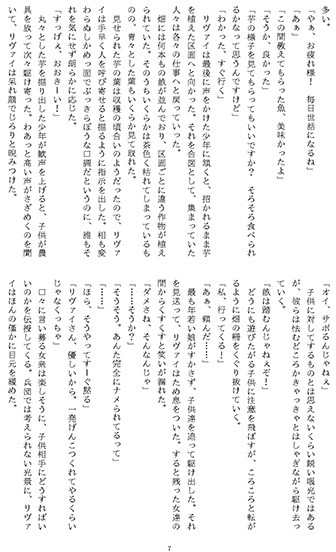 多い。
「やぁ、お疲れ様！　毎日世話になるね」
「あぁ」
「この間教えてもらった魚、美味かったよ」
「そうか、良かった」
「芋の様子を見てもらってもいいですか？　そろそろ食べられ
るかなって思うんですけど」
「わかった、すぐ行く」
　リヴァイは最後に声をかけた少年に頷くと、招かれるまま芋
を植えた区画へと向かった。それを合図として、集まっていた
人々は各々の仕事へと戻っていった。
　畑には何本もの畝が並んでおり、区画ごとに違う作物が植え
られていた。そのうちいくらかは茶色く枯れてしまっているも
のの、青々とした葉もいくらか見て取れた。
　見せられた芋の葉は収穫の頃合いのようだったので、リヴァ
イは手早く人を呼び寄せると掘るように指示を出した。相も変
わらぬしかめっ面でぶっきらぼうな口調だというのに、誰もそ
れを気にせず朗らかに応じた。
「すっげぇ、おおきーい！」
　丸々とした芋を掘り出した少年が歓声を上げると、子供が農
具を放って次々駆け寄った。わあっと高い声がさざめくのを聞
いて、リヴァイは呆れ顔でじろりと睨みつけた。
「オイ、サボるんじゃねぇ」
　子供に対してするものとは思えないくらい鋭い眼光ではある
が、彼らは怯むどころかきゃっきゃとはしゃぎながら駆け去っ
ていく。
「畝は踏むんじゃねぇぞ！」
　どうにも遊びたがる子供に注意を飛ばすが、ころころと転が
るように畑の柵をくぐり抜けていく。
「私、行ってくる！」
「あぁ、頼んだ……」
　最も年若い娘がすかさず、子供達を追って駆け出した。それ
を見送って、リヴァイはため息をついた。すると残った女達の
間からくすくすと笑いが漏れた。
「ダメさね、そんなんじゃ」
「……そうか？」
「そうそう。あんた完全にナメられてるって」
「ほら、そうやってすーぐ黙る」
「リヴァイさん、優しいから。一発げんこつくれてやるくらい
じゃなくっちゃ」
　口々に言い募る女衆は楽しそうに、子供相手にどうすればい
いのかを伝授してくる。兵団では考えられない光景に、リヴァ
イはほんの僅かに目元を緩めた。
7